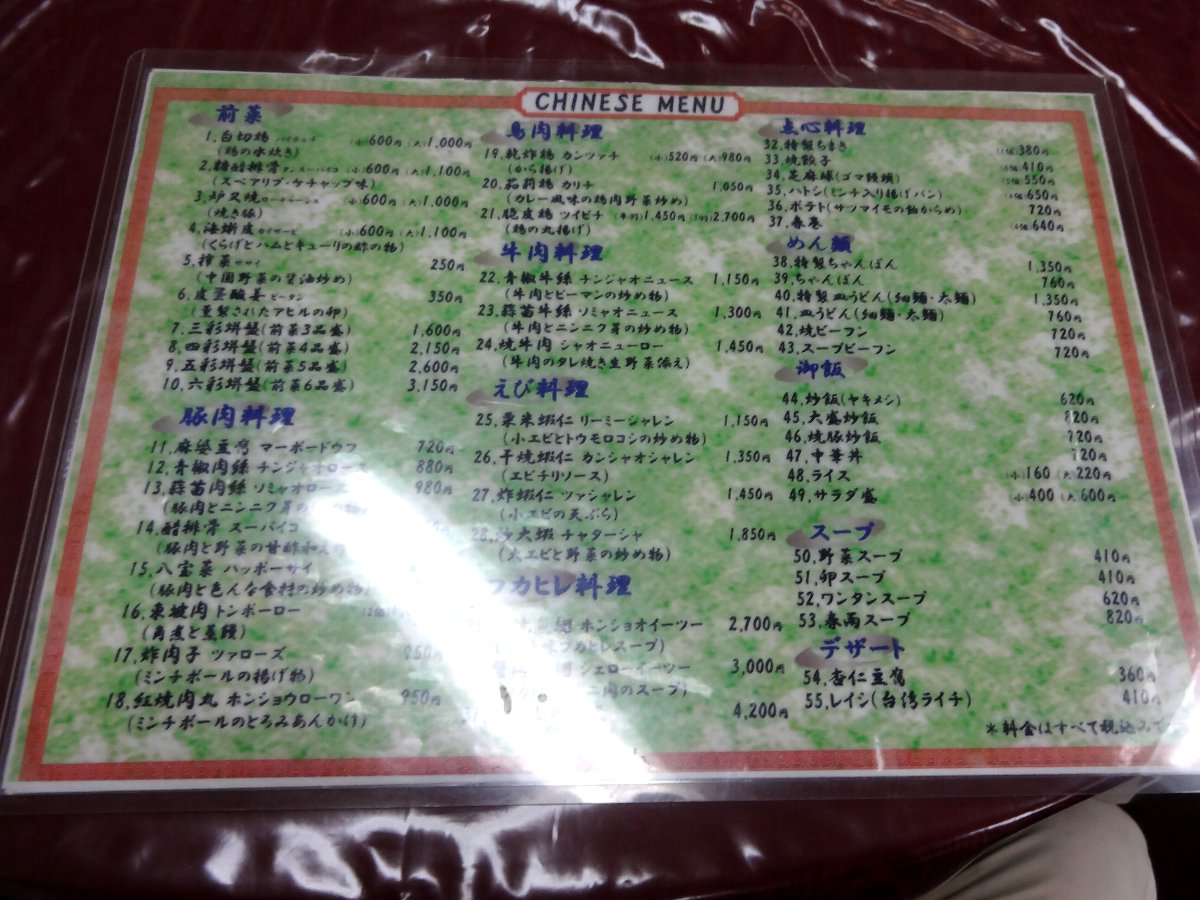 CHINESE MENU
前菜
1.白切鶏 (小)600円 (大)1,000円
(鶏の水炊き)
2.糖醋排骨 (小)600円 (大)1,100円
(スペアリブ・ケチャップ味)
3.炉叉焼 ローチャーシュ (小)600円 (大)1,000円
(焼き豚)
4.海蜥皮 (小)600円 (大)1,100円
(くらげとハムとキューリの酢の物)
5.搾菜 ザサイ 250円
(中国野菜の醤油炒め)
6.皮蛋酸姜 ピータン 350円
(重製されたアヒルの卵)
7.三彩拼盤(前菜3品盛) 1,600円
8.四彩拼盤(前菜4品盛) 2,150円
9.五彩拼盤(前菜5品盛) 2,600円
10.六彩拼盤(前菜6品盛) 3,150円
豚肉料理
11.麻婆豆腐 マーボードウフ 720円
12.青椒肉絲 チンジャオロース 880円
13.蒜苗肉絲 ソミャオロース 980円
(豚肉とニンニク芽の
14.醋排骨 スーパイコ
(豚肉と野菜の甘酢和え
15.八宝菜 ハッポーサイ
(豚肉と色んな食材の炒め物)
16.東坡肉 トンポーロー
(角煮と蒸饅)
17.炸肉子 ツァローズ 950円
(ミンチボールの揚げ物)
18.紅焼肉丸 ホンショウローワン 950円
(ミンチボールのとろみあんかけ)
鳥肉料理
19.乾炸鶏 カンツァチ (小)520円 (大)980円
(から揚げ)
20.茄莉鶏 カリチ 1,050円
(カレー風味の鶏肉野菜炒め)
21.脆皮鶏 ツイピチ (半羽)1,450円 (1羽)2,700円
(鶏の丸揚げ)
牛肉料理
22.青椒牛絲 チンジャオニュース 1,150円
(牛肉とピーマンの炒め物)
23.蒜苗牛絲 ソミャオニュース 1,300円
(牛肉とニンニク芽の炒め物)
24.焼牛肉 シャオニューロー 1,450円
(牛肉のタレ焼き生野菜添え)
えび料理
25.粟米蝦仁 リーミーシャレン 1,150円
(小エビとトウモロコシの炒め物)
26.干焼蝦仁 カンシャオシャレン 1,350円
(エビチリソース)
27.炸蝦仁 ツァシャレン 1,450円
(小エビの天ぷら)
28.炒大蝦 チャターシャ 1,850円
(大エビと野菜の炒め物)
フカヒレ料理
翅 ホンショオイーツー 2,700円
フカヒレスープ)
シェローイーツー 3,000円
肉のスープ)
4,200円
点心料理
32.特製ちまき 380円
33.焼餃子 410円
34.芝麻球(ゴマ饅頭) 550円
35.ハトシ(ミンチ入り揚げパン) 650円
36.ポラト(サツマイモの飴からめ) 720円
37.春巻 640円
めん類
38.特製ちゃんぽん 1,350円
39.ちゃんぽん 760円
40.特製皿うどん(細麺・太麺) 1,350円
41.皿うどん(細麺・太麺) 760円
42.焼ビーフン 720円
43.スープビーフン 720円
御飯
44.炒飯(ヤキメシ) 620円
45.大盛炒飯 820円
46.焼豚炒飯 720円
47.中華丼 720円
48.ライス (小)160 (大)220円
49.サラダ盛 (小)400 (大)600円
スープ
50.野菜スープ 410円
51.卵スープ 410円
52.ワンタンスープ 620円
53.春雨スープ 820円
デザート
54.杏仁豆腐 360円
55.レイシ(台湾ライチ) 410円
*料金はすべて税込みで